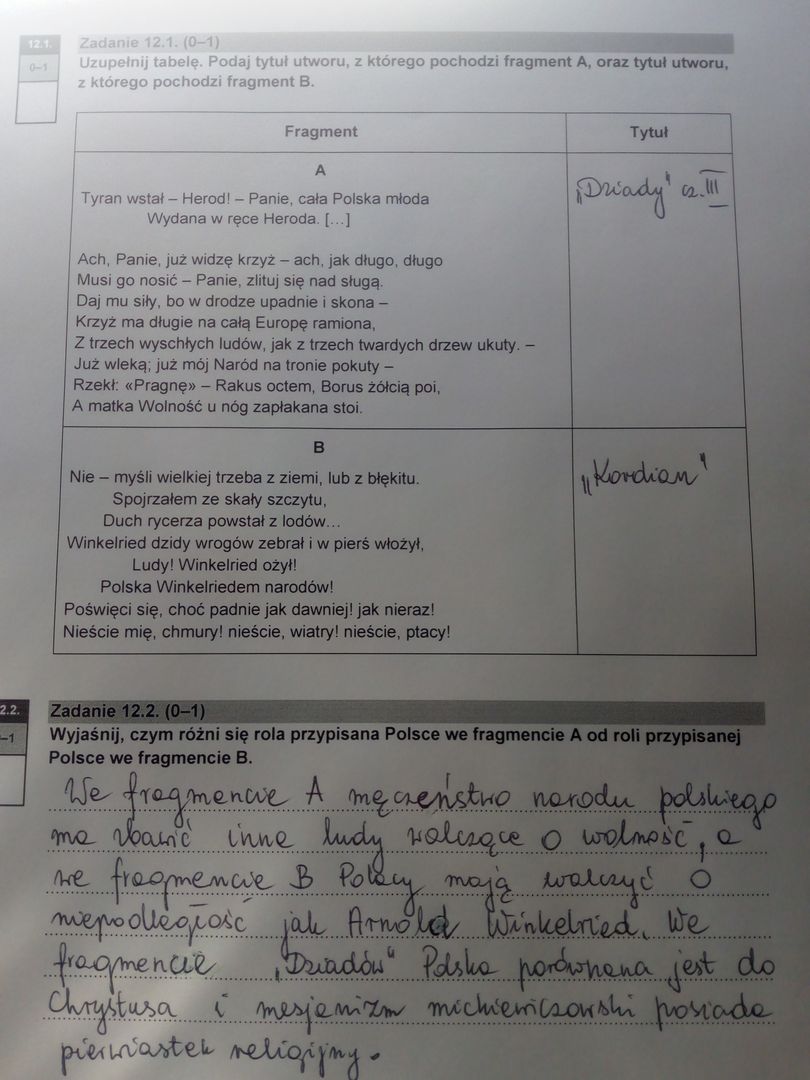 12.1.
Zadanie 12.1. (0–1)
0–1
Uzupełnij tabelę. Podaj tytuł utworu, z którego pochodzi fragment A, oraz tytuł utworu,
z którego pochodzi fragment B.
Fragment
Tytuł
A
„Dziady" cz. III
Tyran wstał – Herod! – Panie, cała Polska młoda
Wydana w ręce Heroda. [...]
Ach, Panie, już widzę krzyż – ach, jak długo, długo
Musi go nosić – Panie, zlituj się nad sługą.
Daj mu siły, bo w drodze upadnie i skona –
Krzyż ma długie na całą Europę ramiona,
Z trzech wyschłych ludów, jak z trzech twardych drzew ukuty. –
Już wleką; już mój Naród na tronie pokuty –
Rzekł: «Pragnę» – Rakus octem, Borus żółcią poi,
A matka Wolność u nóg zapłakana stoi.
B
„Kordian"
Nie – myśli wielkiej trzeba z ziemi, lub z błękitu.
Spojrzałem ze skały szczytu,
Duch rycerza powstał z lodów...
Winkelried dzidy wrogów zebrał i w pierś włożył,
Ludy! Winkelried ożył!
Polska Winkelriedem narodów!
Poświęci się, choć padnie jak dawniej! jak nieraz!
Nieście mię, chmury! nieście, wiatry! nieście, ptacy!
2.2.
Zadanie 12.2. (0–1)
–1
Wyjaśnij, czym różni się rola przypisana Polsce we fragmencie A od roli przypisanej
Polsce we fragmencie B.
We fragmencie A męczeństwo narodu polskiego
ma zbawić inne ludy walczące o wolność, a
we fragmencie B Polacy mają walczyć o
niepodległość jak Arnold Winkelried. We
fragmencie „Dziadów" Polska porównana jest do
Chrystusa i mesjanizm mickiewiczowski posiada
pierwiastek religijny.